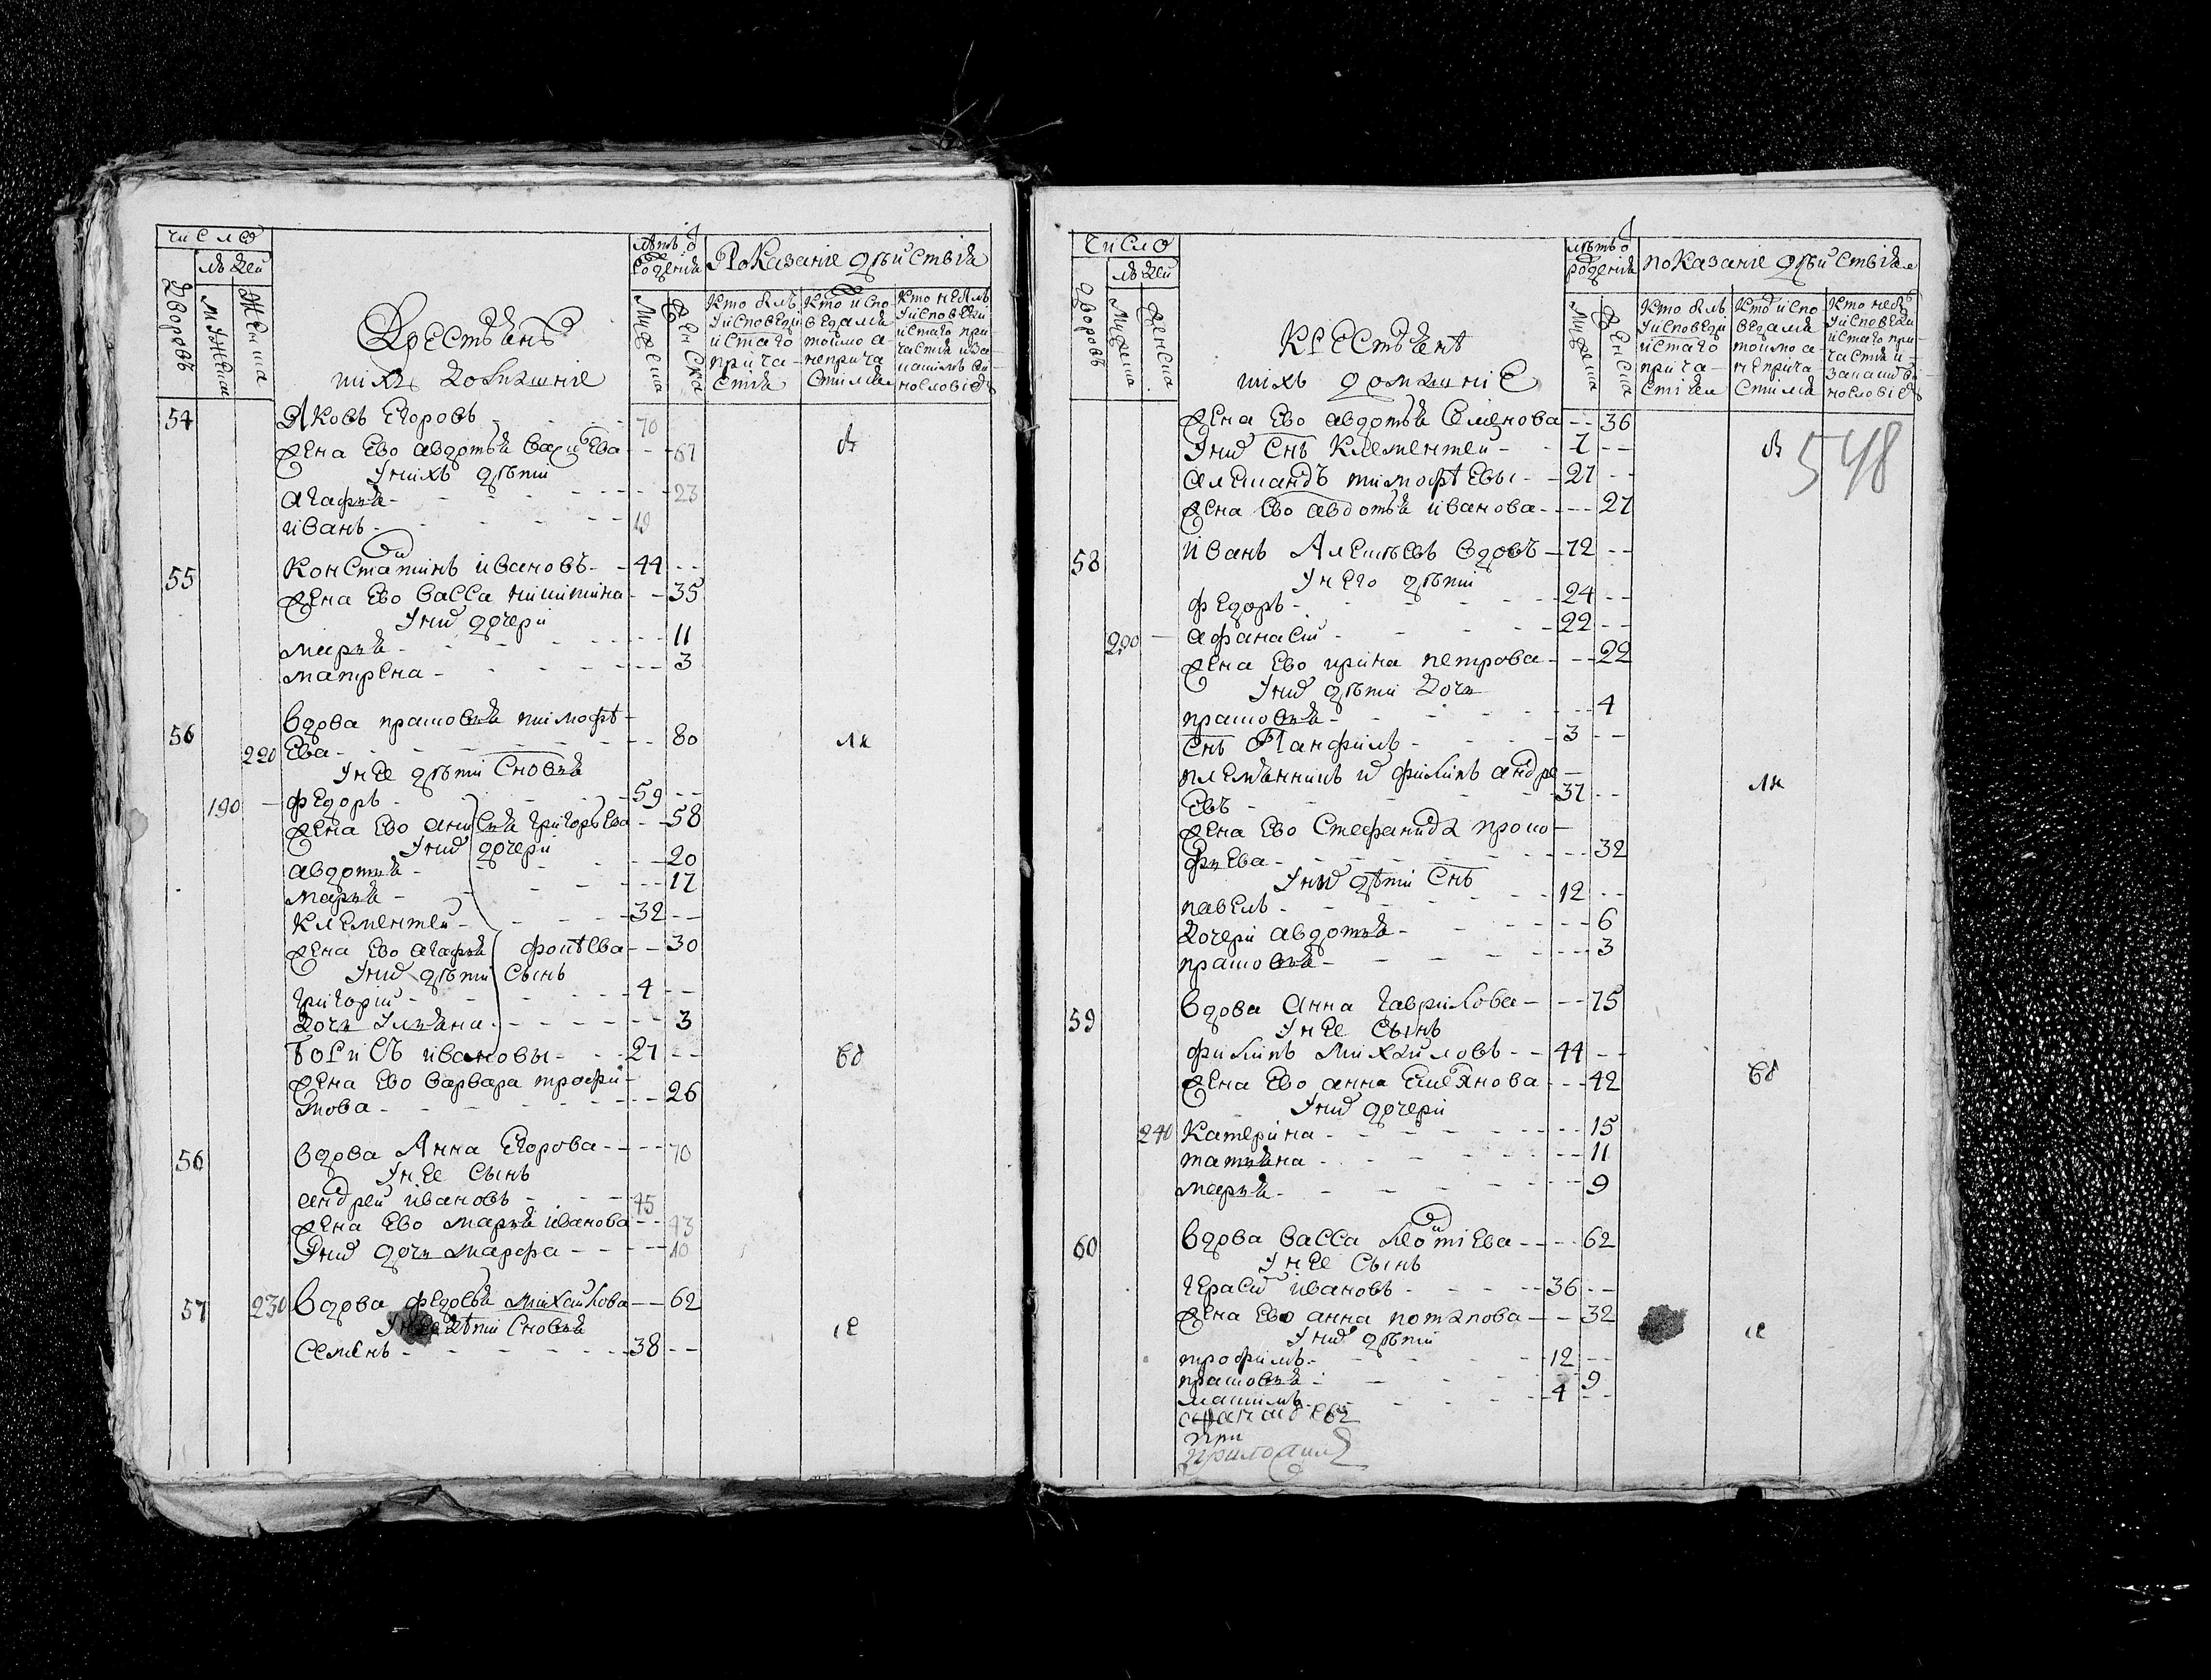 число
людей
дворовъ
мужеска
женска
Крестьянѣ
и ихъ домашніе
лѣтъ ѿ рожденія
мужеска
женска
Показаніе дѣйствія
кто былъ у исповеди и с̃таго причастия
кто исповедался токмо а не причастился
кто не былъ у исповеди и с̃таго причастия
54 Яковъ Егоровъ - 70
жена ево авдотья - - 67
у нихъ дѣти
агафья - - 23
иванъ - 19
55 Константинъ ивановъ - 44 - -
жена ево васса никитина - - 35
у нихъ дочери
марья - - 11
матрена - - 3
56 вдова прасковья тимофѣ
220 ева - - 80
у нее дѣти сновья
190 федоръ - 59 - -
жена ево анисья григорьева - - 58
у нихъ дочери
авдотья - - 20
марья - - 17
климентей - 32 - -
жена ево агафья фотѣева - - 30
у нихъ дѣти сынъ
григорий - 4 - -
дочь ульяна - - 3
борисъ ивановы - 27 - -
жена ево варвара трофи
мова - - 26
56 вдова Анна Егорова - - 70
у нее сынъ
андрей ивановъ - 45
жена ево марья иванова - - 43
у нихъ дочь марфа - - 10
57 230 вдова федосья михайлова - - 62
у нее дѣти сновья
семенъ - 38 - -
число
людей
дворовъ
мужеска
женска
крестьянѣ
и ихъ домашніе
лѣтъ ѿ рожденія
мужеска
женска
показаніе дѣйствія
кто былъ у исповеди и с̃таго причастия
кто исповедался токмо а не причастился
кто не былъ у исповеди и с̃таго причастия
жена ево авдотья семенова - - 36
у нихъ снъ клементей - 7 - -
548
тимофѣевы - 27 - -
жена ево авдотья иванова - - 27
58 иванъ Алексѣевъ вдовъ - 72 - -
у него дѣти
федоръ - 24 - -
200 афанасий - 22 - -
жена ево ирина петрова - - 22
у нихъ дѣти дочь
прасковья - - 4
снъ Панфилъ - 3 - -
племянникъ филипъ андре
евъ - 37 - -
жена ево стефанида проко
фьева - - 32
у нихъ дѣти снъ
павелъ - 12 - -
дочери авдотья - - 6
прасковья - - 3
59 вдова анна гаврилова - - 75
у нее сынъ
филипъ михайловъ - 44 - -
жена ево анна емельянова - - 42
у нихъ дочери
240 катерина - - 15
татьяна - - 11
марья - - 9
60 вдова васса - - 62
у нее сынъ
герасим ивановъ - 36 - -
жена ево анна потапова - - 32
у нихъ дѣти
трофимъ - 12 - -
прасковья - - 9
максимъ - 4 - -
при